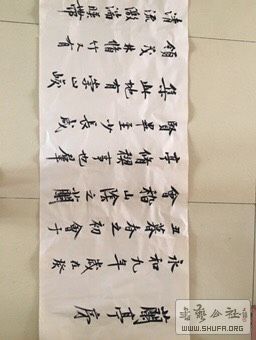 蘭亭序
永和九年歲在癸
丑暮春之初會于
會稽山陰之蘭
亭脩禊事也羣
賢畢至少長咸
集此地有崇山峻
領茂林脩竹又有
清流激湍映帶
书法公社
WWW.SHUFA.ORG